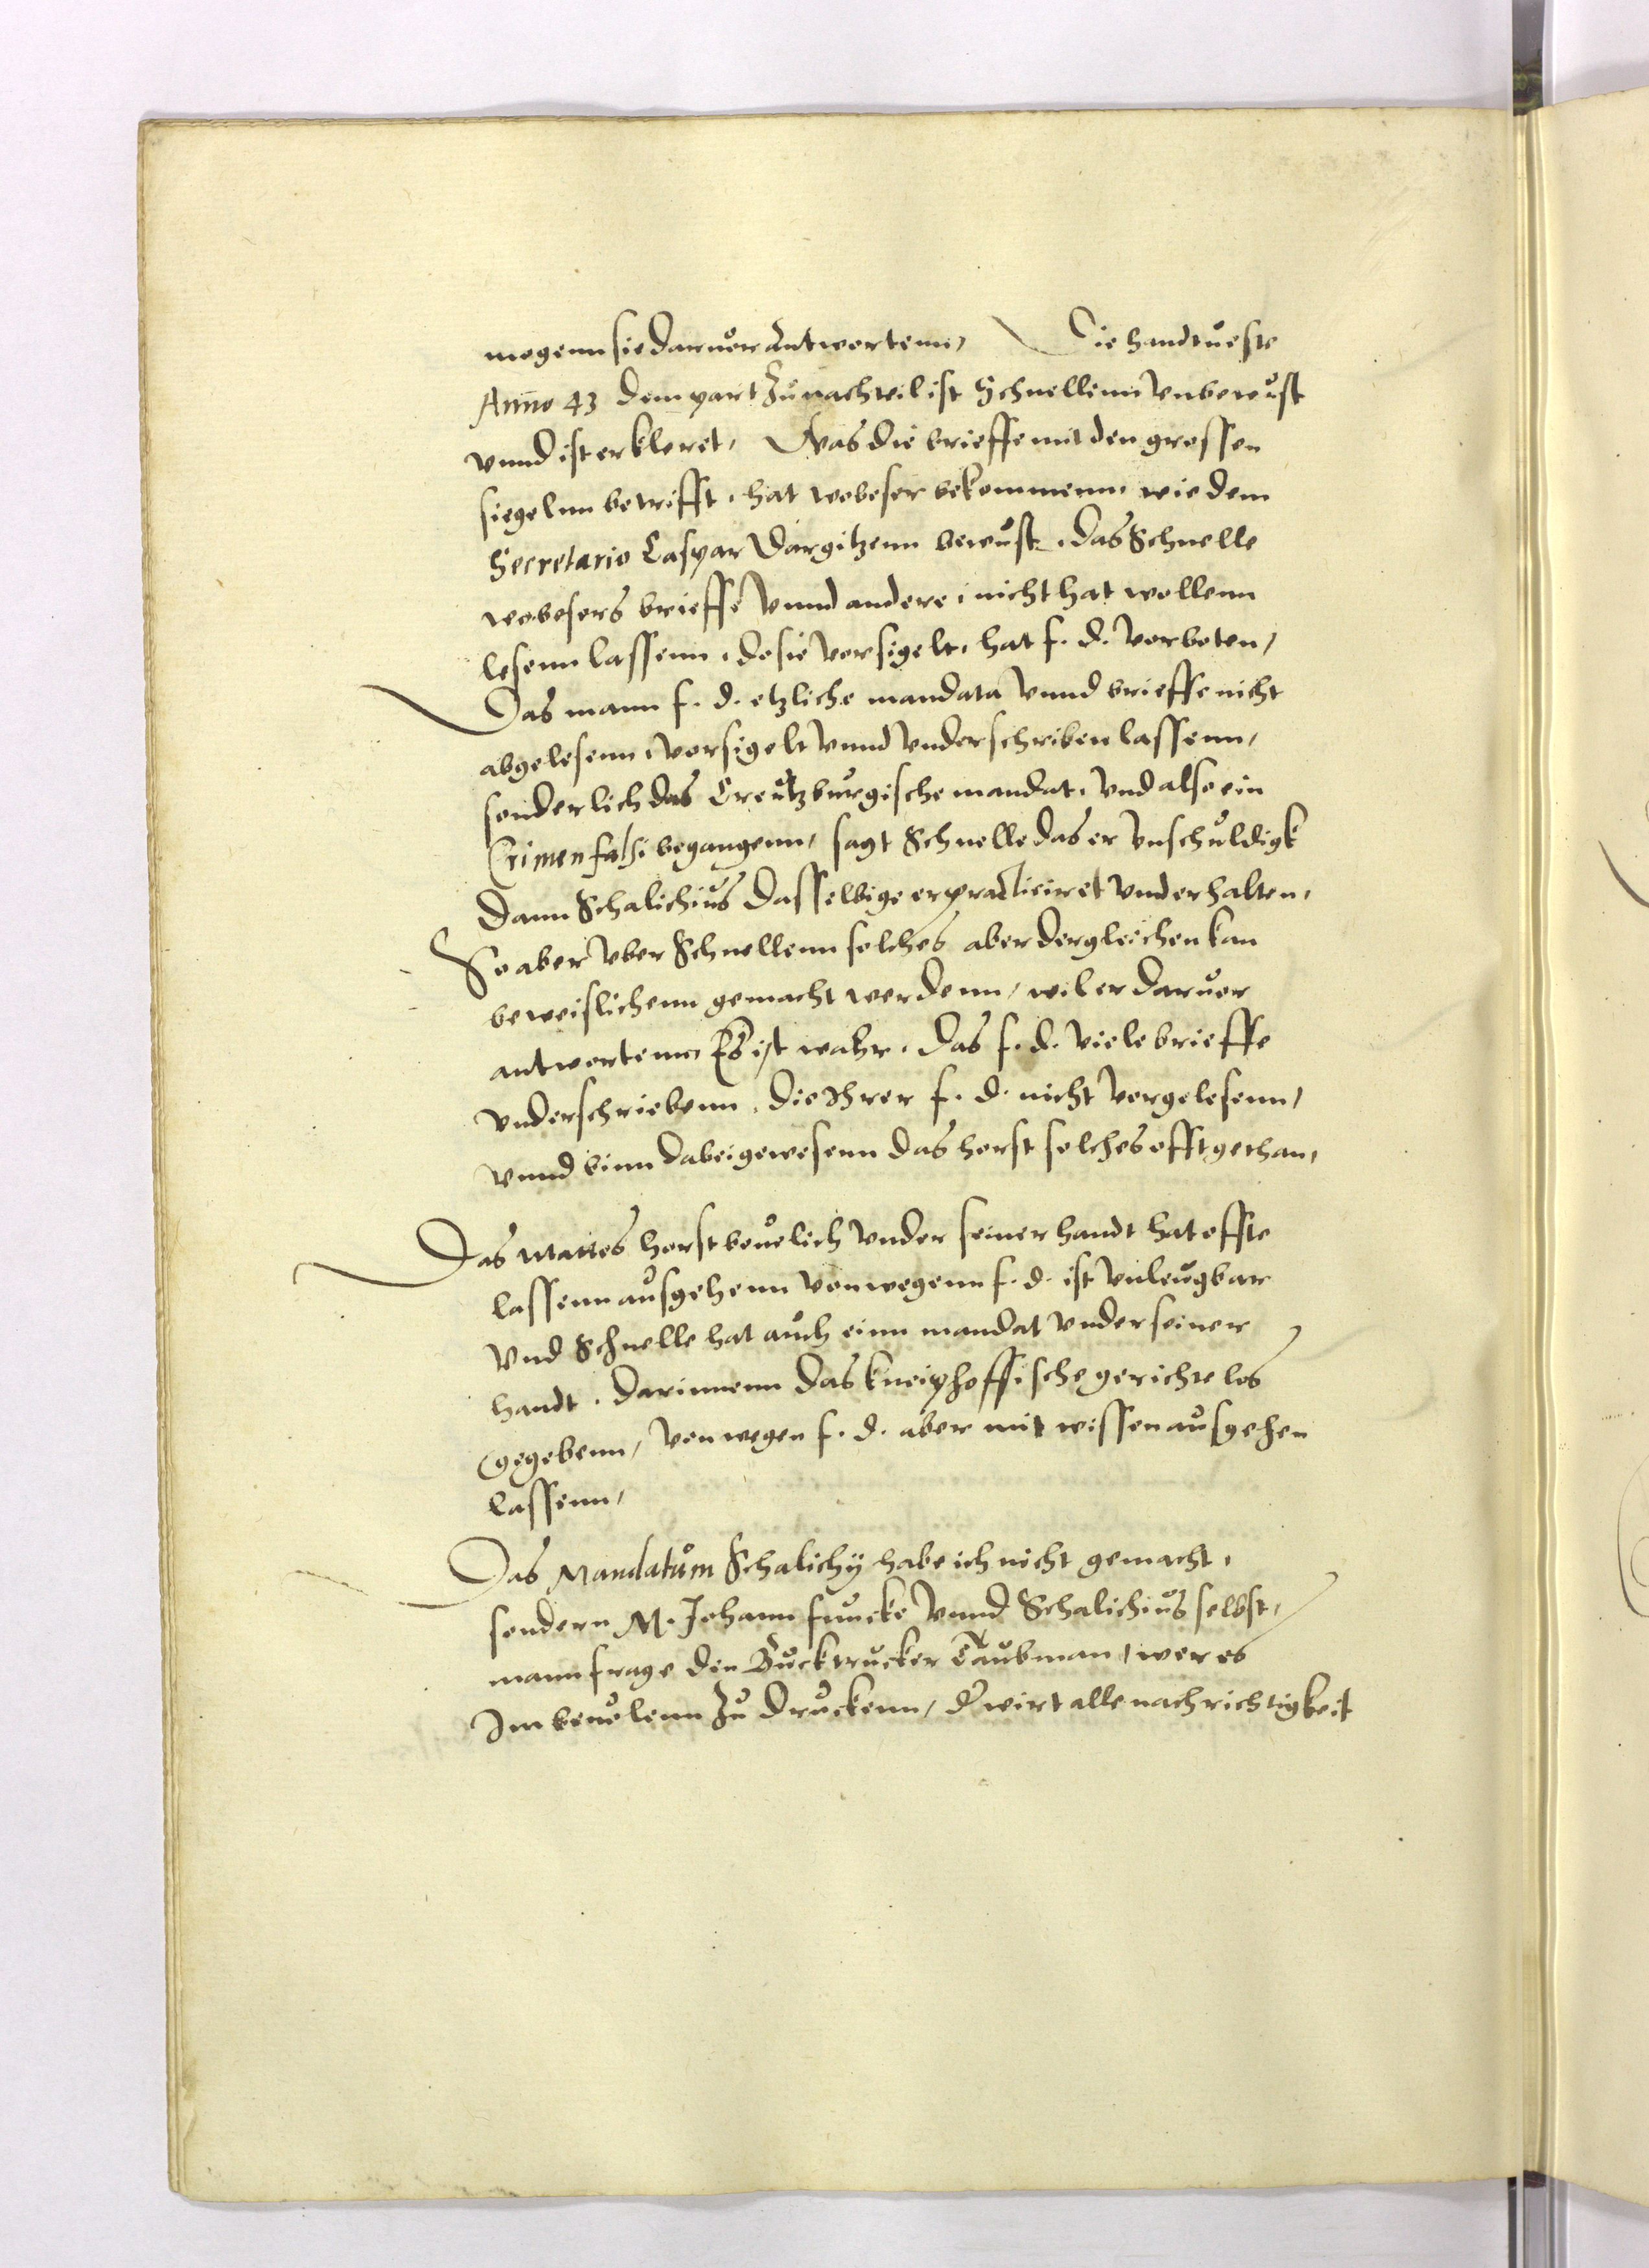 mogenn sie daruor Antwortenn, Die handtueste
Anno 43 dem part zu nachteil ist Schnellenn vnbewust
vnnd ist erkleret, Was die brieffe mit den grossen
siegelnn betrifft, hat wobeser bekommenn, wie dem
Secretario Caspar Dargitzenn bewust, das Schnelle
wobesers brieffe vnnd andere, nicht hat wollenn
lesenn lassenn, do sie versigelt, hat f. d. verboten,
Das mann f. d. etzliche mandata vnnd brieffe nicht
abgelesenn, versigelt vnnd vnderschriben lassenn,
sonderlich das Creutzburgische mandat, vnd also ein
Crimen falsi begangenn, sagt Schnelle das er vnschuldigk
Dann Schalichius dasselbige erpracticiret vnd erhalten,
So aber vber Schnellenn solches aber dergleichen kan
beweislichenn gemacht werdenn, wil er daruor
antwortenn, Es ist wahr, das f. d. viele brieffe
vnderschriebenn, die Ihrer f. d. nicht vorgelesenn,
vnnd binn dabei gewesenn das horst solches offt gethan,
Das Mattes horst beuelich vnder seiner handt hat offte
lassenn ausgehenn vonwegenn f. d. ist vnleugbar
vnd Schnelle hat auch einn mandat vnder seiner
handt, darinnenn das kneiphoffische gerichte los
gegebenn, von wegen f. d. aber mit wissen ausgehen
lassenn,
Das Mandatum Schalichy habe ich nicht gemacht,
sondern M. Johann funcke vnnd Schalichius selbst,
mann frage den Bucktrucker Taubman, wer es
Im beuolenn zu druckenn, d wirt alle nachrichtigkeit